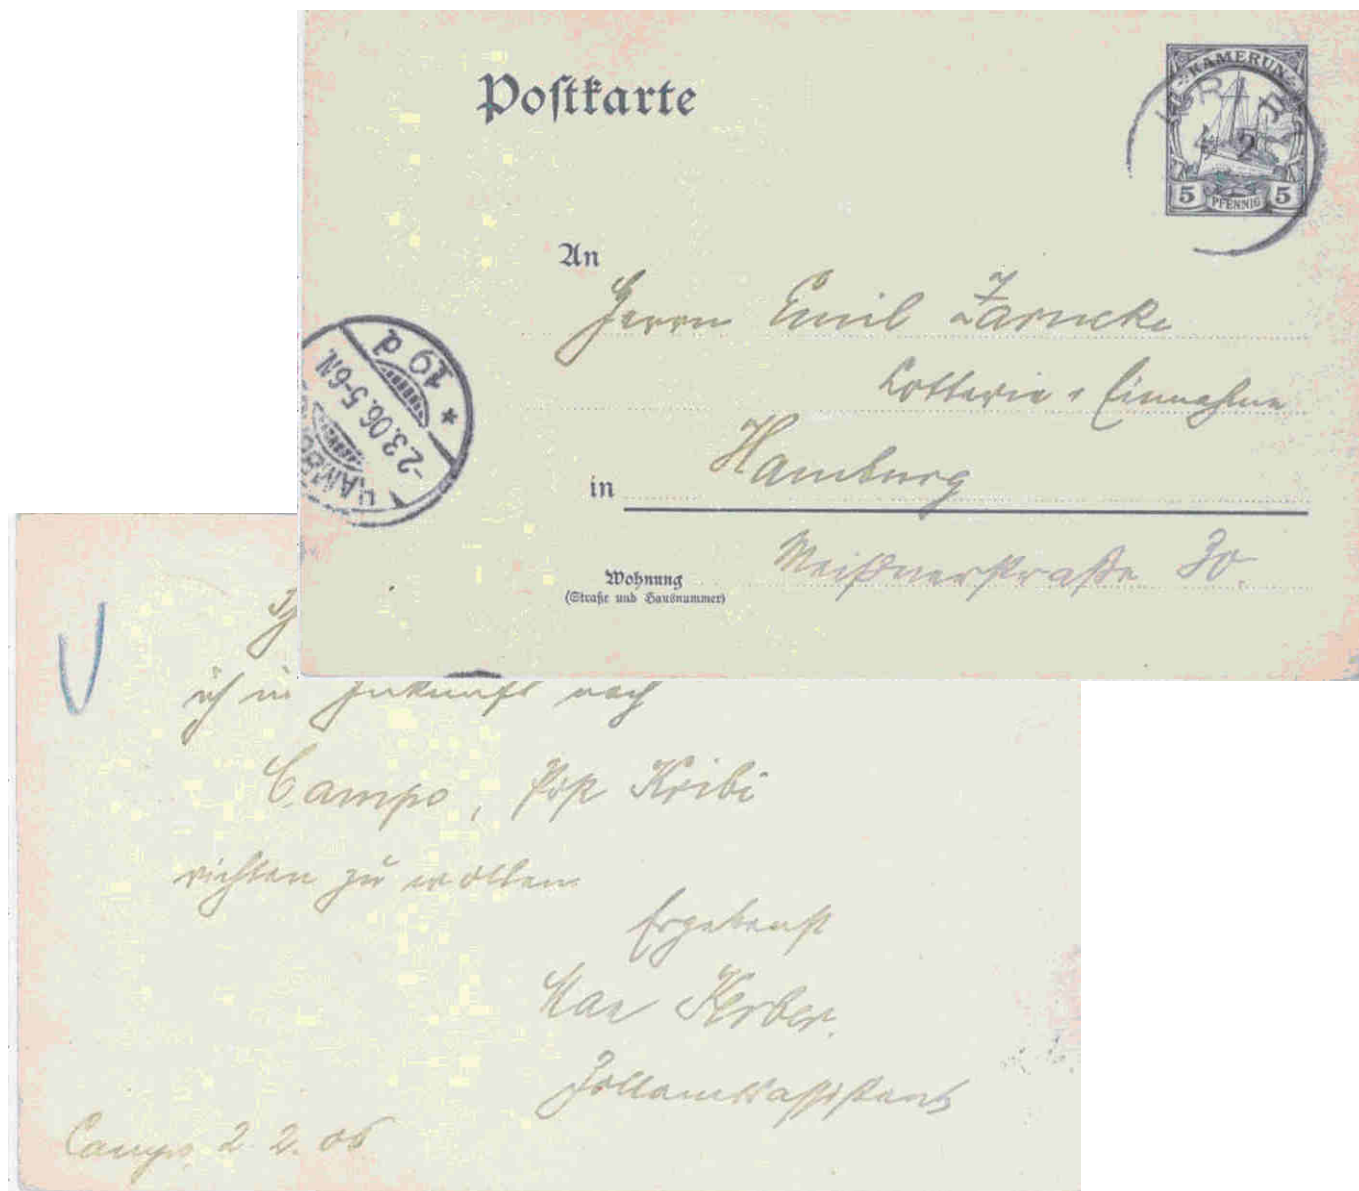 Postkarte
KAMERUN
5 PFENNIG 5
KRIBI
4 2
An
Herrn Emil Zarncke
Lotterie-Einnahme
in Hamburg
Wohnung
(Straße und Hausnummer)
Meißnerstraße 30.
HAMBURG
-2.3.06.5-6N.
* 19 d
ich in Zukunft nach
Campo, Post Kribi
richten zu wollen
Ergebenst
Max Kerber.
Zollamtsassistent
Campo, 2 2. 06